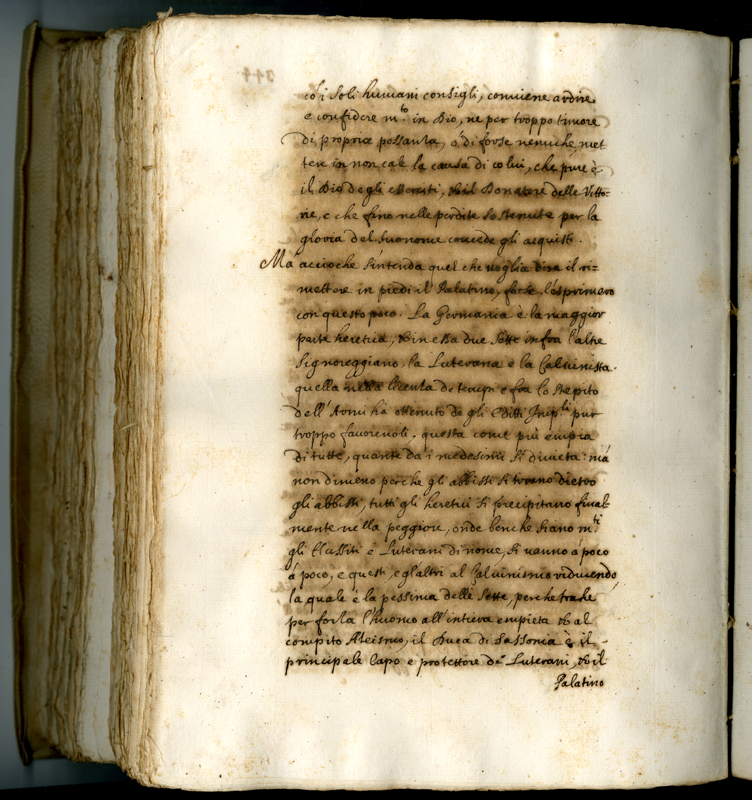 344
có i soli humani consigli, conviene ardire
e confidere m.to in Dio, ne per troppo timore
di propria possanza, ó di forse nemiche met
tere in non cale la causa di colui, che pure è
il Dio degli eserciti, et il Donatore delle Vitto=
rie, e che fino nelle perdite sostenute per la
gloria del suo nome concede gli acquisti.
Má accioche s'intenda quel che voglia dira il ri=
mettere in piedi il Palatino, forse l'esprimero
con questo poco. La Germania è la maggior
parte heretica, et in essa due sette infra l'altre
signoreggiano, la Luterana e la Calvinista.
quella nella licenza de tempi e fra lo strepito
dell'Armi há ottenuto de gli Editti Imp.li pur
troppo favorevoli, questa come più empia
di tutte, quante da i medesimi si divieta: má
non dimeno perche gli abbissi si tirano dietro
gli abbissi, tutti gli heretici si precipitano final
mente nella peggiore, onde benche siano m.ti
gli Hussiti e Luterani di nome, si vanno á poco
á poco, e questi, e gl'altri al Calvinismo riducendo,
la quale é la pessima delle sette, perche trahe
per forza l'huomo all'intiera empietá et al
compito Ateismo, il Duca di Sassonia è il
principale Capo e protettore de Luterani, et il
Palatino